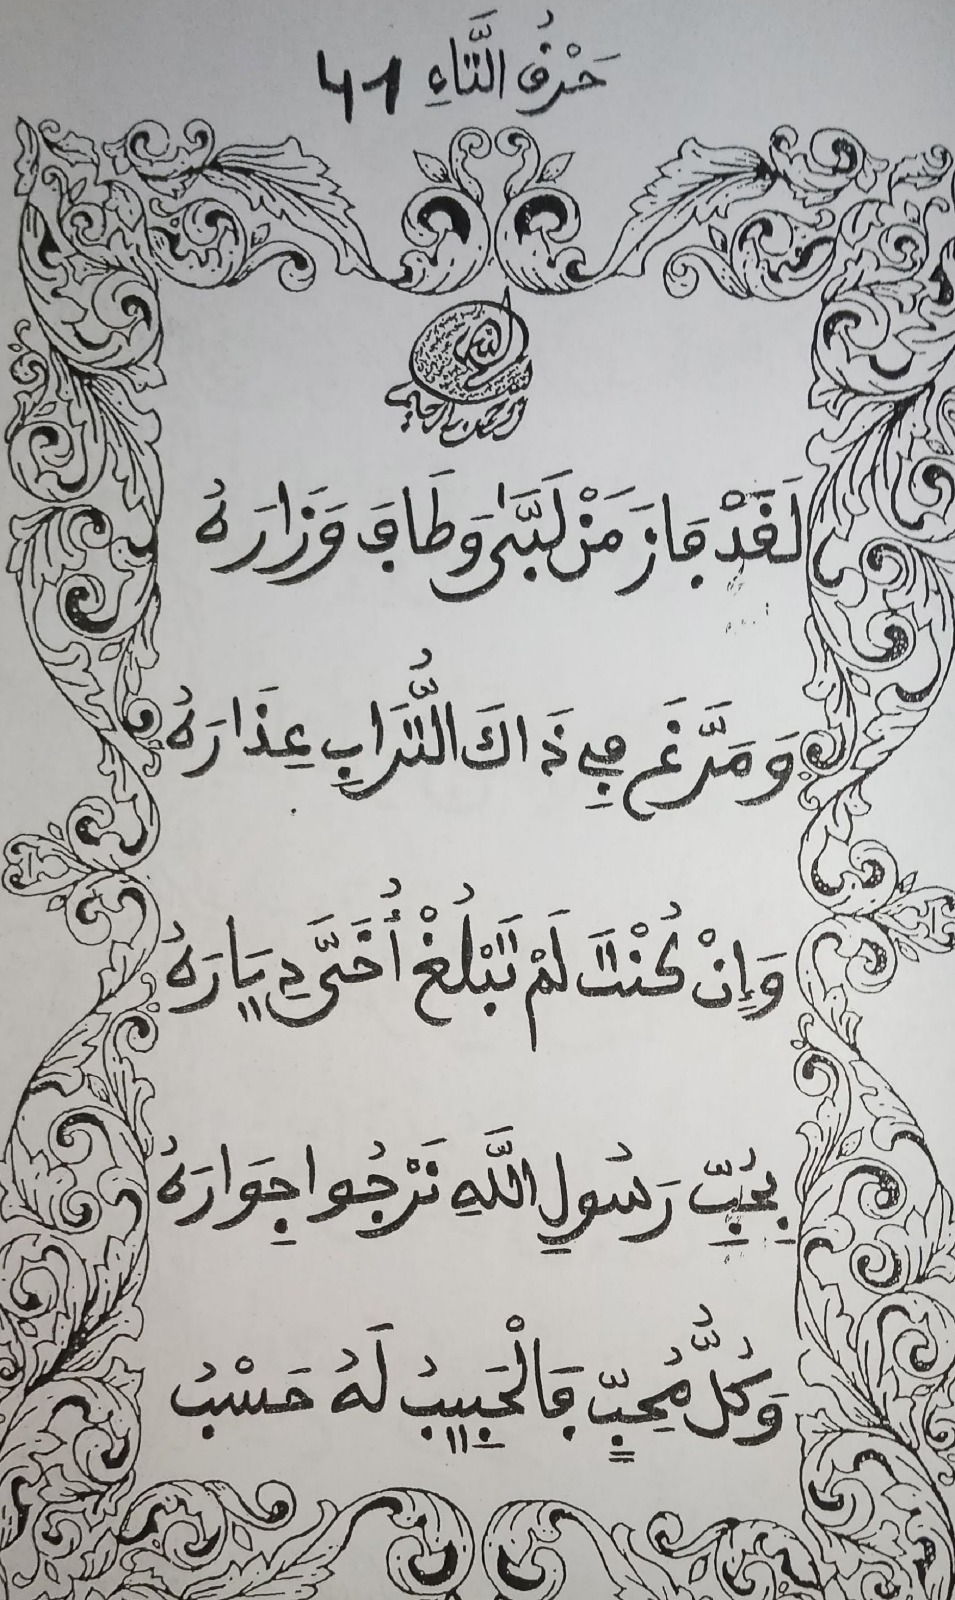 حَرْفُ التَّاءِ 41
لَقَدْ فَازَ مَنْ لَبَّىٰ وَطَافَ وَزَارَهُ
وَمَرَّغَ فِي ذَاكَ التُّرَابِ عِذَارَهُ
وَإِنْ كُنْتَ لَمْ تَبْلُغْ أُخَيَّ دِيَارَهُ
بِحُبِّ رَسُولِ اللَّهِ نَرْجُوا جِوَارَهُ
وَكُلُّ مُحِبٍّ فَالْحَبِيبُ لَهُ حَسْبُ